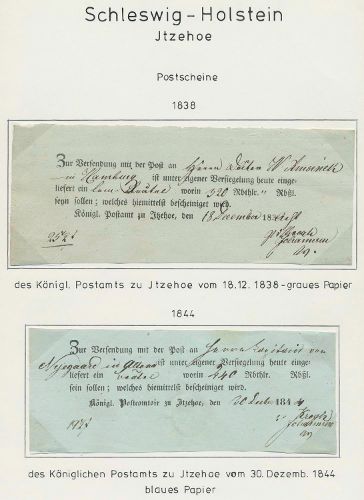 Schleswig-Holstein
Jtzehoe
Postscheine
1838
Zur Versendung mit der Post an Herrn Doctor W Amsinck
in Hamburg ist unter eigener Versiegelung heute einge-
liefert ein worin 320 Rbthlr. " Rbßl.
seyn sollen; welches hiemittelst bescheiniget wird.
Königl. Postamt zu Itzehoe, den 18 December 18
des Königl. Postamts zu Jtzehoe vom 18.12. 1838-graues Papier
1844
Zur Versendung mit der Post an Herrn von
in Altona ist unter eigener Versiegelung heute einge-
liefert ein worin 240 Rbthlr. Rbßl.
seyn sollen; welches hiemittelst bescheiniget wird.
Königl. Postcomtoir zu Itzehoe, den 30 1844
des Königlichen Postamts zu Jtzehoe vom 30. Dezemb. 1844
blaues Papier